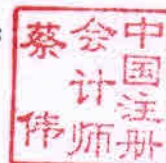 中国注册
会计师
蔡伟